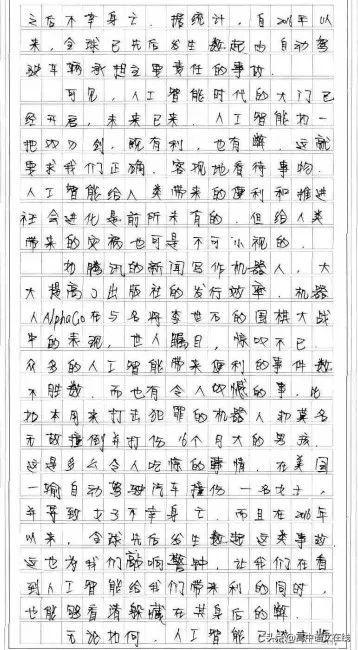 之后不幸身亡。据统计,自2016年以
来,全球已先后发生数起由自动驾
驶车辆承担主要责任的事故。
可见,人工智能时代的大门已
经开启,未来已来。人工智能如一
把双刃剑,既有利,也有弊,这就
要求我们正确、客观地看待事物。
人工智能给人类带来的便利和推进
社会进化是前所未有的,但给人类
带来的灾祸也可是不可小视的。
如腾讯的新闻写作机器人,大
大提高了出版社的发行效率。机器
人AlphaGo在与名将李世石的围棋大战
中的表现,世人瞩目,惊叹不已。
众多的人工智能带来便利的事件数
不胜数。而也有令人叹憾的事,比
如本用来打击犯罪的机器人却莫名
无故撞倒并打伤16个月大的男孩,
这是多么令人吃惊的事情。在美国
一辆自动驾驶汽车撞伤一名女士,
并导致女子不幸身亡。而且在2016年
以来,全球先后发生数起这类事故
这也为我们敲响警钟,让我们在看
到人工智能给我们带来利的同时,
也能够看清躲藏在其身后的弊。
无论如何,人工智能已
头条@高中语文在线